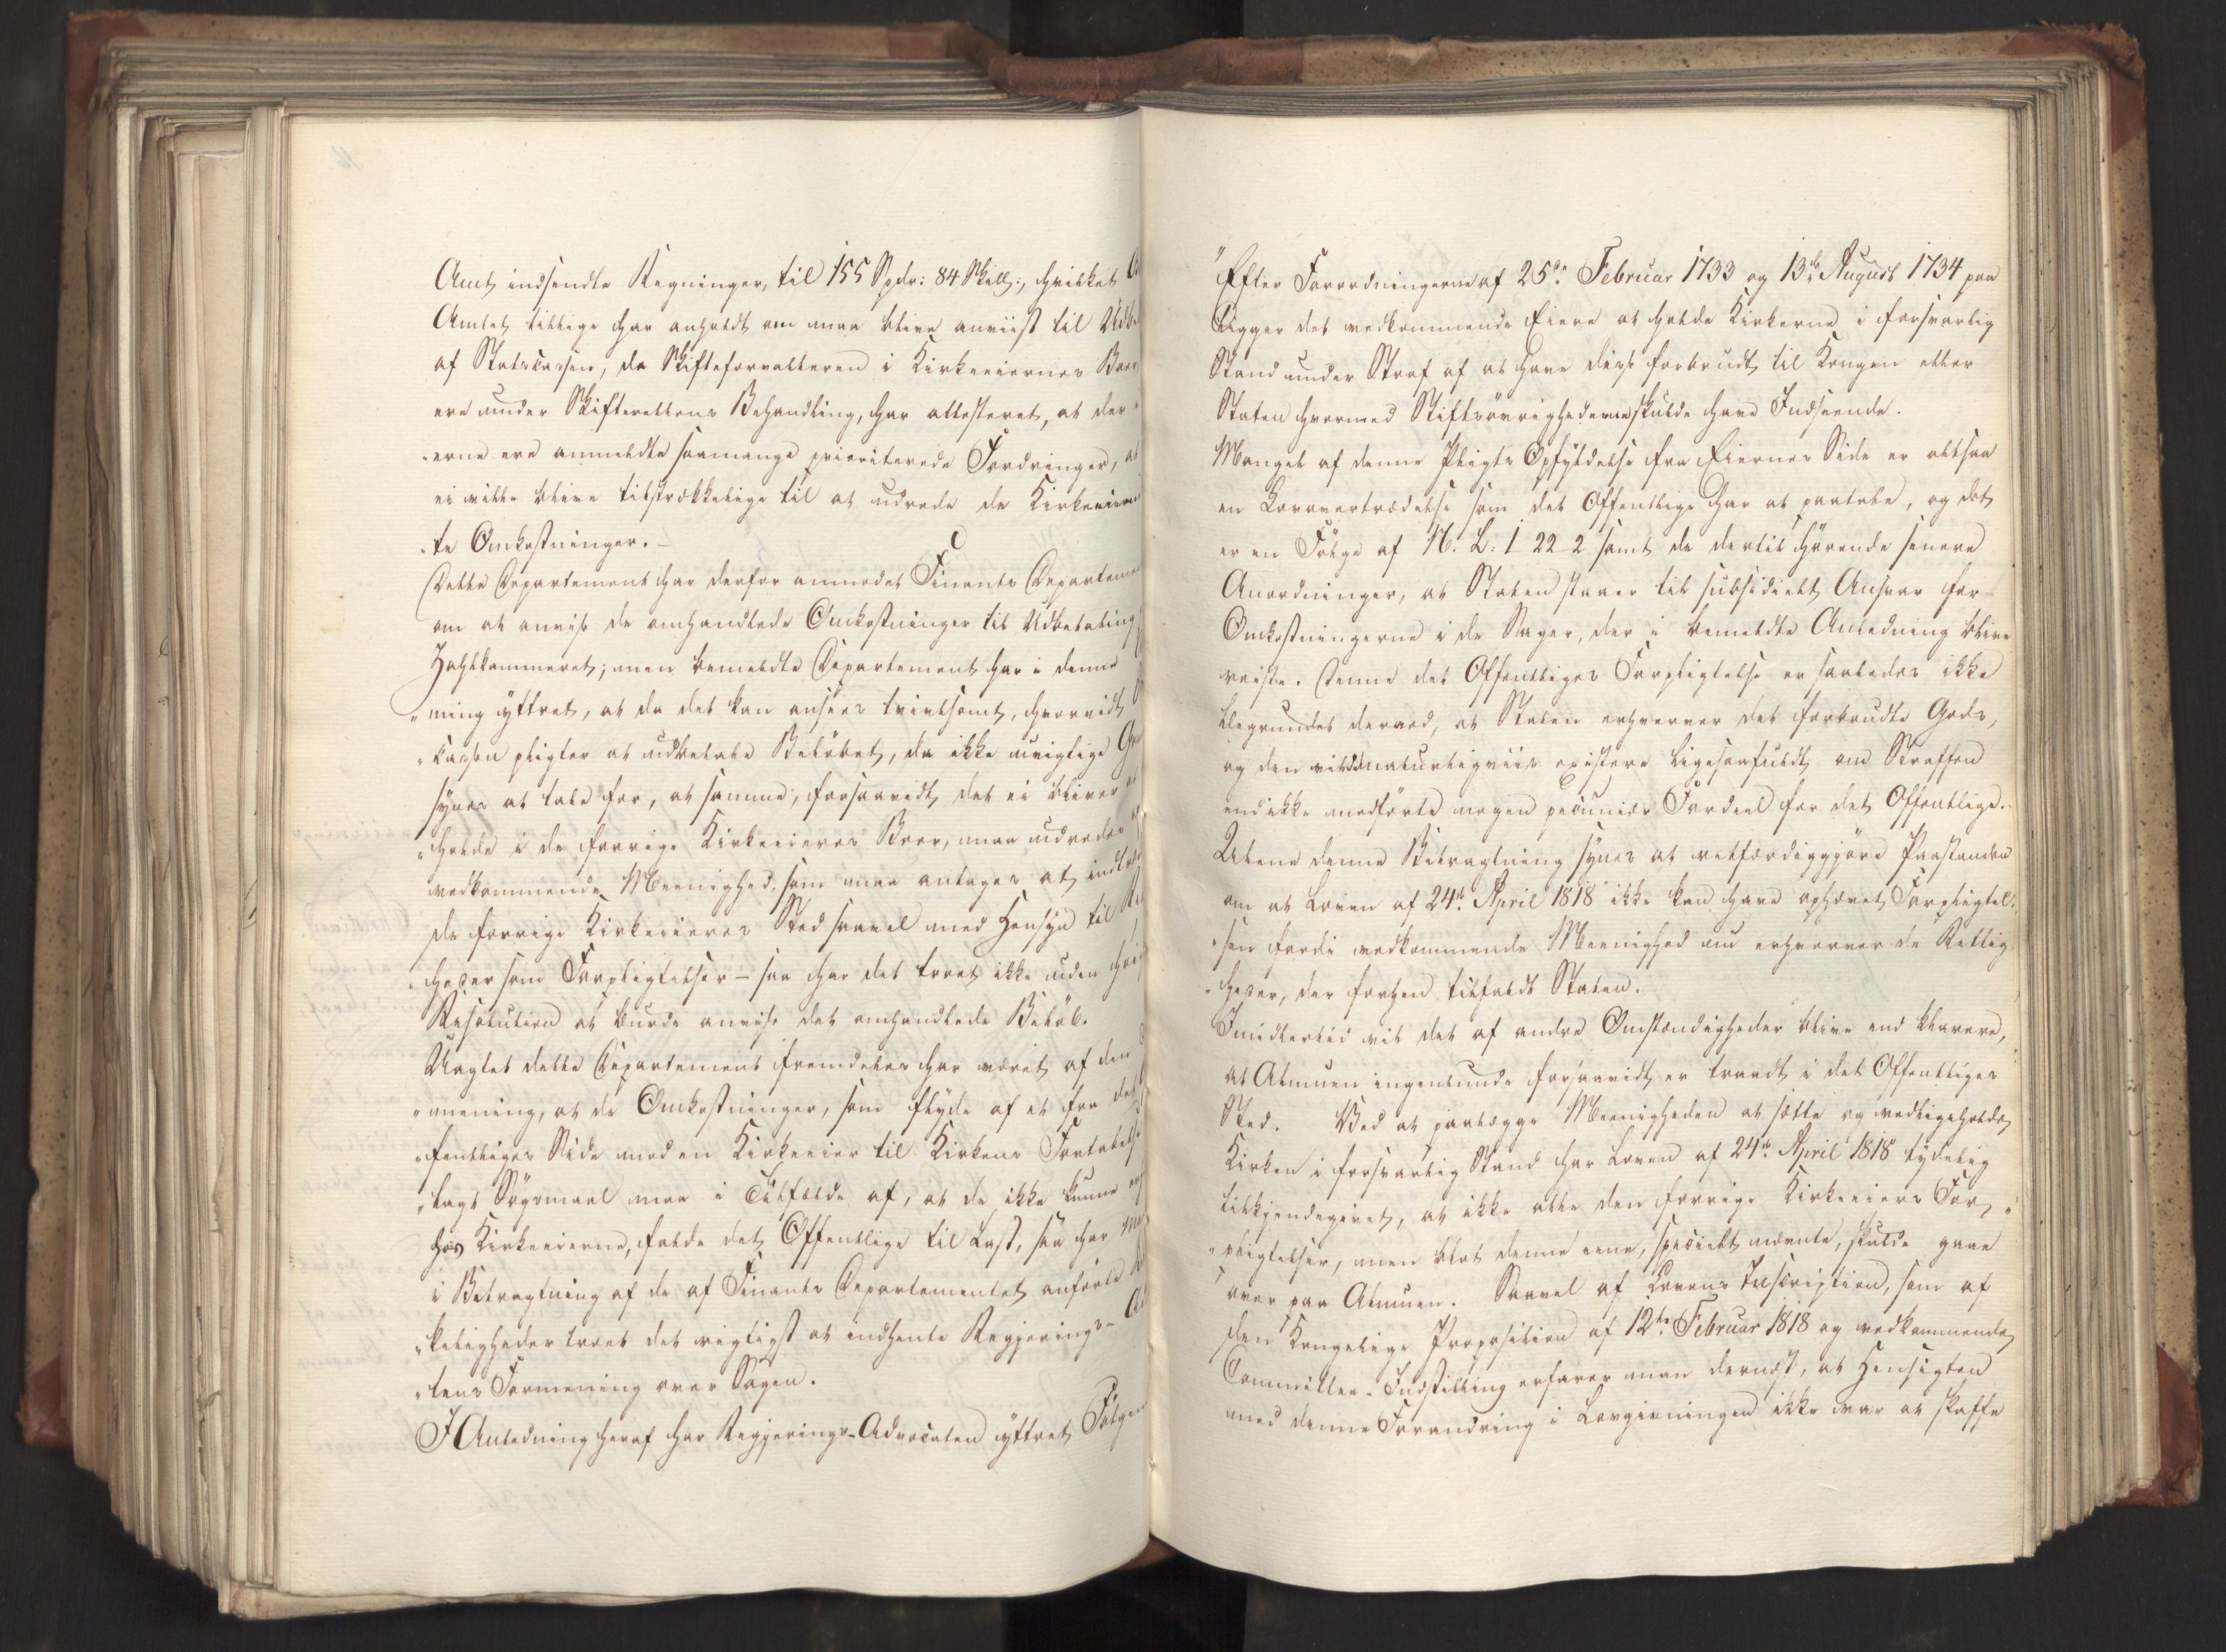 Amt indsendte Regninger, til 155 Spdr: 84 Skill:, hvilket
Amtet tillige har anholdt om maa blive anviist til
af Statscassen, da Skifteforvalteren i Kirkeeiernes
ere under Skifterettens Behandling, har attesteret, at der
„erne ere anmeldte saamange prioriterede Fordringer,
ei ville blive tilstrækkelige til at udrede de
„te Omkostninger.–
Dette Departement har derfor anmodet Finants
om at anvise de omhandlede Omkostninger til Udbetaling
Zahlkammeret; men bemeldte Departement har i denne
„ning yttret, at da det kan ansees tvivlsomt, hvorvidt
„cassen pligter at udbetale Beløbet, da ikke uvigtige
synes at tale for, at samme, forsaavidt det ei bliver
„holde i de forrige Kirkeeieres Boer, maa udredes
vedkommende Meenighed, som maa antages at
de forrige Kirkeeieres Sted saavel med Hensyn til
„heder som Forpligtelser – saa har det troet ikke uden
Resolution at burde anvise det omhandlede Beløb.
Uagtet dette Departement fremdeles har været af den
„mening, at de Omkostninger, som flyde af et fra det
„fentliges Side mod en Kirkeeier til Kirkens Fortabelse
„lagt Søgsmaal maa i Tilfælde af, at de ikke kunne
hos Kirkeeierne, falde det Offentlige til Last, saa har
i Betragtning af de af Finants Departementet anførte
„keligheder troet det rigtigst at indhente Regjerings-
„tens Formening over Sagen.
I Anledning heraf har Regjerings-Advocaten yttret
"Efter Forordningerne af 25de Februar 1733 og 13de August 1734 paa
ligger det vedkommende Eiere at holde Kirkerne i forsvarlig
Stand under Straf af at have disse forbrudt til Kongen eller
Staten hvormed Stiftsøvrighederne skulde have Indseende.
Mangel af denne Pligts Opfyldelse fra Eiernes Side er altsaa
en Lovovertrædelse som det Offentlige har at paatale, og det
er en Følge af N. L: 1-22-2 samt de dertil hørende senere
Anordninger, at Staten staaer til subsidiært Ansvar for
Omkostningerne i de Sager, der i bemeldte Anledning blive
reiste. Denne det Offentliges Forpligtelse er saaledes ikke
begrundet derved, at Staten erhverver det forbrudte Gods,
og den vilde naturligviis existere ligesaafuldt om Straffen
end ikke medførte nogen pecuniær Fordeel for det Offentlige.
Alene denne Betragtning synes at retfærdiggjøre Paastanden
om at Loven af 24de April 1818 ikke kan have ophævet Forpligtel„
„sen fordi vedkommende Meenighed nu erhverver de Rettig
„heder, der forhen tilfaldt Staten.
Imidlertid vil det af andre Omstændigheder blive end klarere,
at Almuen ingenlunde forsaavidt er traadt i det Offentliges
Sted. Ved at paalægge Meenigheden at sætte og vedligeholde
Kirken i forsvarlig Stand har Loven af 24de April 1818 tydelig
tilkjendegivet, at ikke alle den forrige Kirkeeiers For„
„pligtelser, men blot denne ene, specielt nævnte, skulde gaae
over paa Almuen. Saavel af Lovens Inscription, som af
den Kongelige Proposition af 12te Februar 1818 og vedkommende
Committee-Indstilling erfarer man dernæst, at Hensigten
med denne Forandring i Lovgivningen ikke var at skaffe